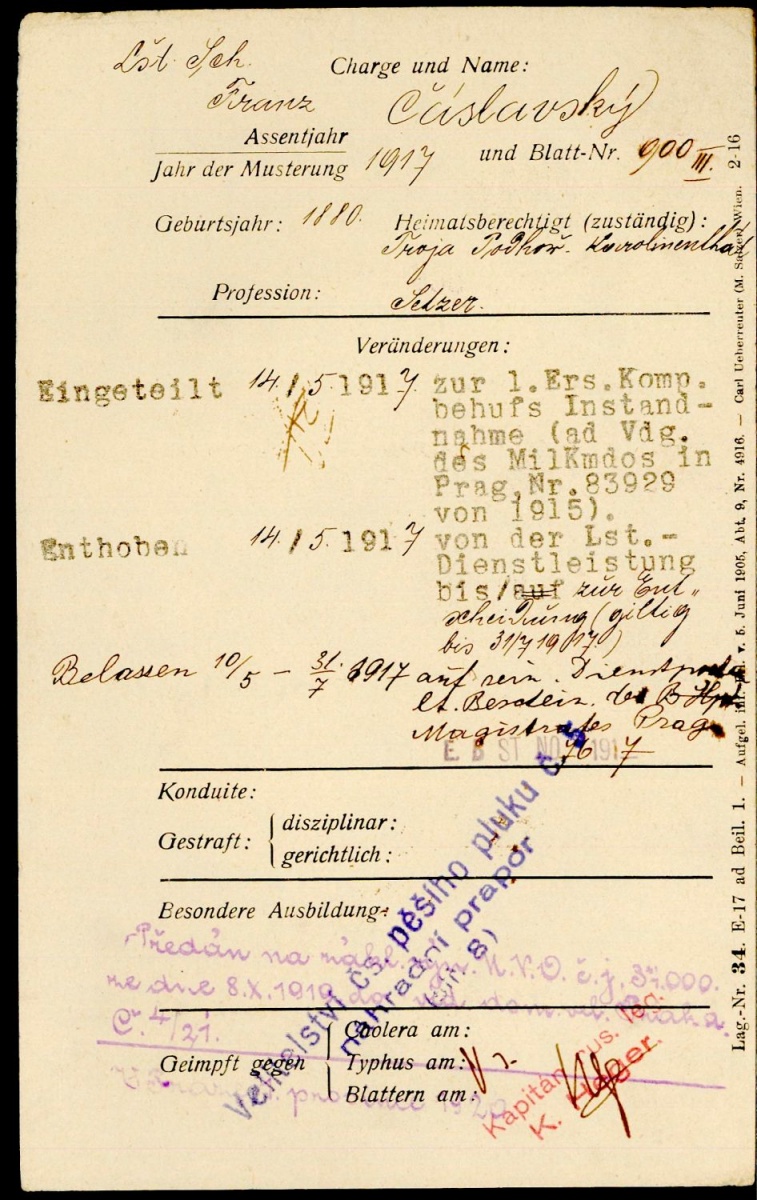 Lst. Sch. Charge und Name:
Franz Čáslavský
Assentjahr
Jahr der Musterung 1917 und Blatt-Nr. 900 III.
Geburtsjahr: 1880. Heimatsberechtigt (zuständig):
Troja Podhoř. Karolinenthal
Profession: Setzer.
Veränderungen:
Eingeteilt 14/5.1917 zur 1.Ers.Komp.
behufs Instand-
nahme (ad Vdg.
des MilKmdos in
Prag,Nr.83929
von 1915).
Enthoben 14/5.1917 von der Lst.-
Dienstleistung
bis/auf zur Ent-
scheidung (giltig
bis 31/7 1917.)
Belassen 10/5 – 31./7 1917 auf sein. Dienstposten
lt. Beschein. des
Magistrates Prag
E B ST No 76 1917
Konduite:
Gestraft: disziplinar:
gerichtlich:
Besondere Ausbildung:
Předán na zákl. výn. M.N.O. č.j. 34.000.
ze dne 8.X.1919 dom. vel. Praha.
Č. 4/21.
Velitelství čs. pěšího pluku č. 5
náhradní prapor
(síň 8)
Geimpft gegen Coolera am:
Typhus am:
Blattern am:
1920
Kapitän rus. leg.
K. Heger.
Lag.-Nr. 34. E-17 ad Beil. 1. — Aufgel. inf. v. 5. Juni 1905, Abt. 9, Nr. 4916. — Carl Ueberreuter (M. Salzer) Wien. 2-16